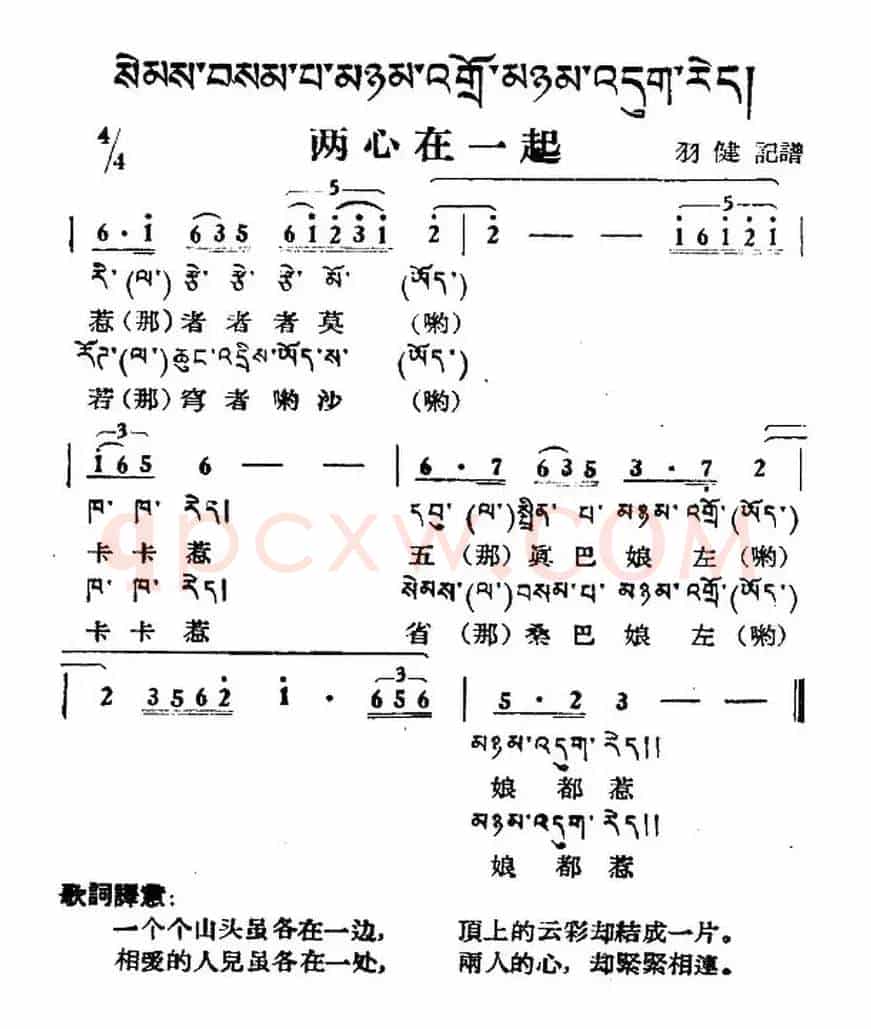 སེམས་བསམ་པ་མཉམ་འགྲོ་མཉམ་འདུག་རེད།
4/4 两心在一起 羽健 記譜
5 5
| 6 · i 6 3 5 6 i 2 3 i 2 | 2 — — i 6 i 2 i |
རི་(ལ་) རྩེ་ རྩེ་ རྩེ་ མོ་ (ཨོད་)
惹(那)者者者莫 (喲)
(ལ་)ཆུང་འདྲིས་ཨོད་ས་ (ཨོད་)
若(那)穹者喲沙 (喲)
3
| i 6 5 6 — — | 6 · 7 6 3 5 3 · 7 2 |
ཁ་ ཁ་ རེད། དབུ་ (ལ་)སྤྲིན་ པ་ མཉམ་འགྲོ་(ཨོད་)
卡卡惹 五(那)眞巴娘左(喲)
ཁ་ ཁ་ རེད། སེམས་(ལ་)བསམ་པ་ མཉམ་འགྲོ་(ཨོད་)
卡卡惹 省(那)桑巴娘左(喲)
3
| 2 3 5 6 2 i · 6 5 6 | 5 · 2 3 — — ‖
མཉམ་འདུག་ རེད།།
娘都惹
མཉམ་འདུག་ རེད།།
娘都惹
歌詞譯意:
一个个山头虽各在一边, 頂上的云彩却結成一片。
相愛的人兒虽各在一处, 兩人的心,却緊緊相連。
qpcxw.com